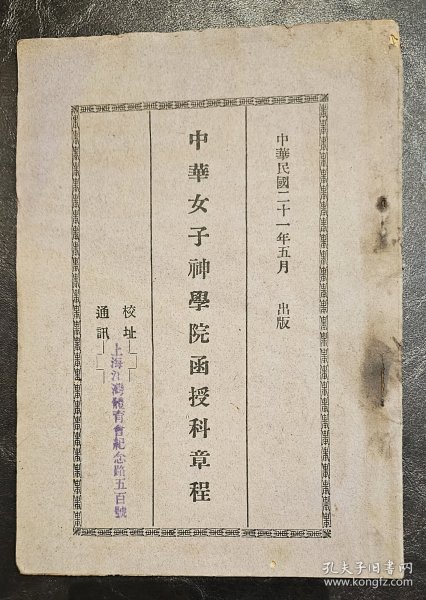 中華民國二十一年五月 出版
中華女子神學院函授科章程
校址
通訊
上海江灣體育會紀念路五百號
孔夫子旧书网
www.kongfz.com